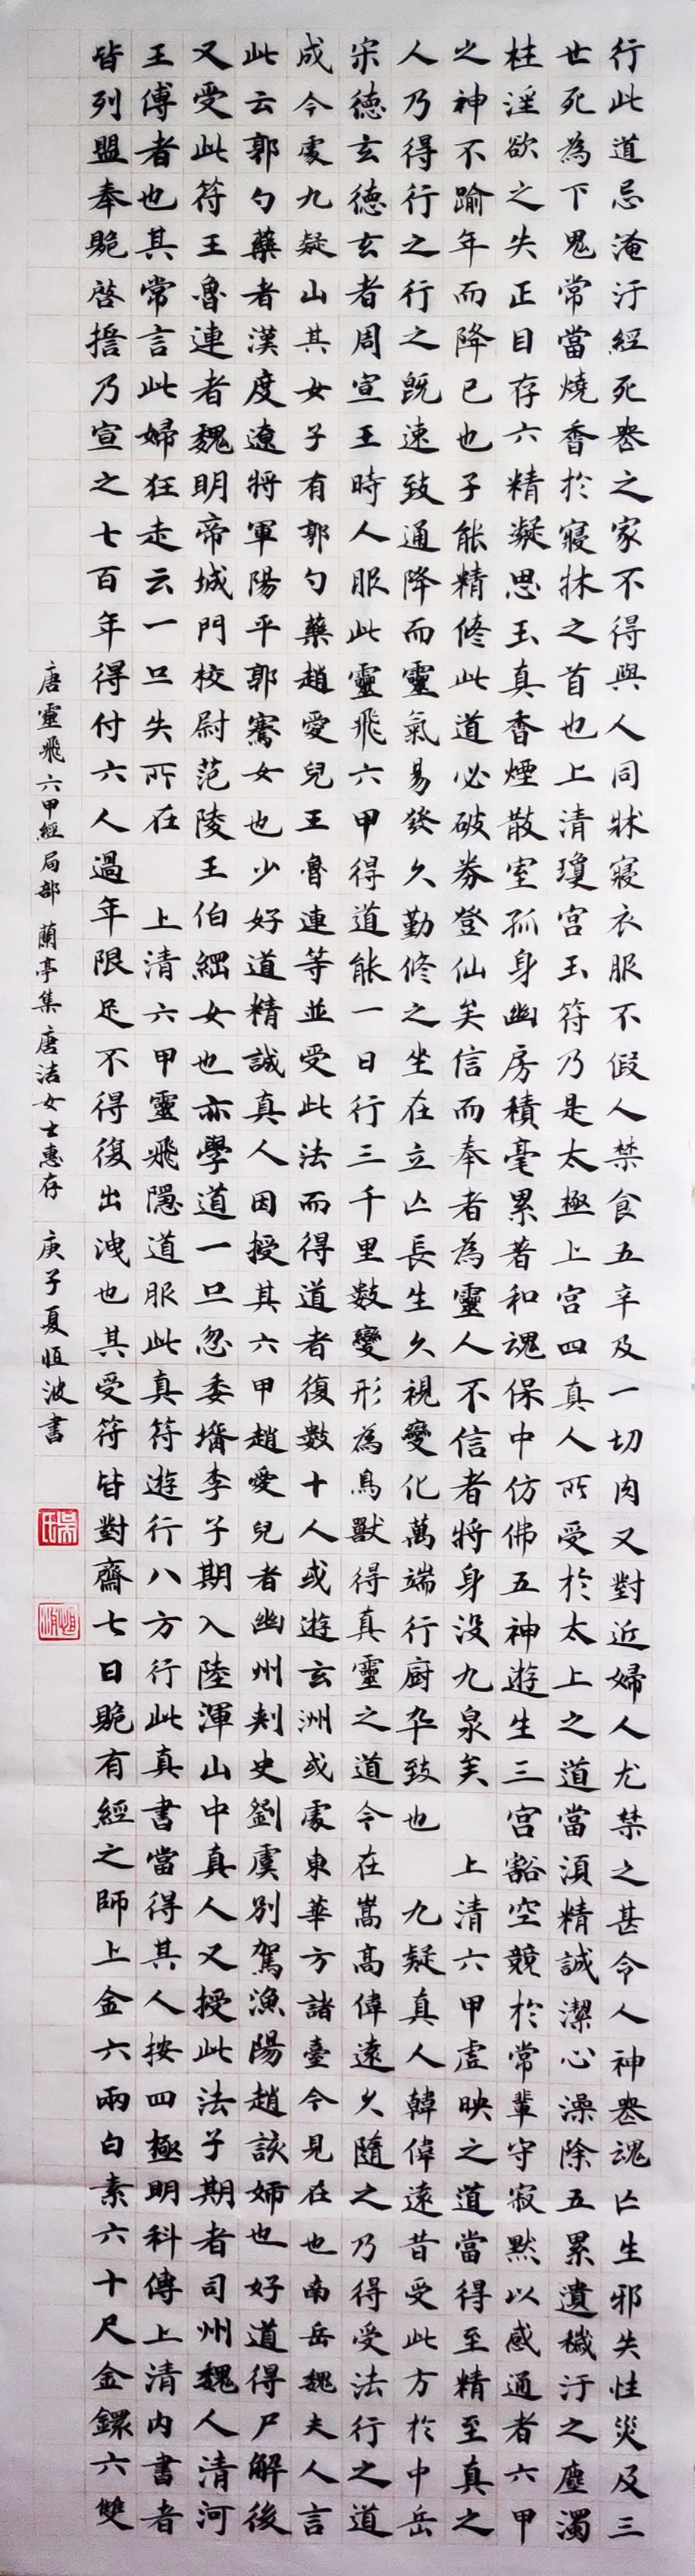 行此道忌淹汙經死喪之家不得與人同牀寢衣服不假人禁食五辛及一切肉又對近婦人尤禁之甚令人神喪魂亡生邪失性災及三
世死為下鬼常當燒香於寢牀之首也上清瓊宮玉符乃是太極上宮四真人所受於太上之道當須精誠潔心澡除五累遺穢汙之塵濁
杜淫欲之失正目存六精凝思玉真香煙散室孤身幽房積毫累著和魂保中仿佛五神遊生三宮豁空競於常輩守寂默以感通者六甲
之神不踰年而降已也子能精修此道必破券登仙矣信而奉者為靈人不信者將身没九泉矣 上清六甲虛映之道當得至精至真之
人乃得行之行之既速致通降而靈氣易發久勤修之坐在立亡長生久視變化萬端行廚卒致也 九疑真人韓偉遠昔受此方於中岳
宋德玄德玄者周宣王時人服此靈飛六甲得道能一日行三千里數變形為鳥獸得真靈之道今在嵩高偉遠久隨之乃得受法行之道
成今處九疑山其女子有郭勺藥趙愛兒王魯連等並受此法而得道者復數十人或遊玄洲或處東華方諸臺今見在也南岳魏夫人言
此云郭勺藥者漢度遼將軍陽平郭騫女也少好道精誠真人因授其六甲趙愛兒者幽州刾史劉虞別駕漁陽趙該婦也好道得尸解後
又受此符王魯連者魏明帝城門校尉范陵王伯綱女也亦學道一旦忽委壻李子期入陸渾山中真人又授此法子期者司州魏人清河
王傅者也其常言此婦狂走云一旦失所在 上清六甲靈飛隱道服此真符遊行八方行此真書當得其人按四極明科傳上清内書者
皆列盟奉跪啓擔乃宣之七百年得付六人過年限足不得復出洩也其受符皆對齋七日跪有經之師上金六兩白素六十尺金鐶六雙
唐靈飛六甲經局部 蘭亭集唐洁女士惠存 庚子夏恒波書